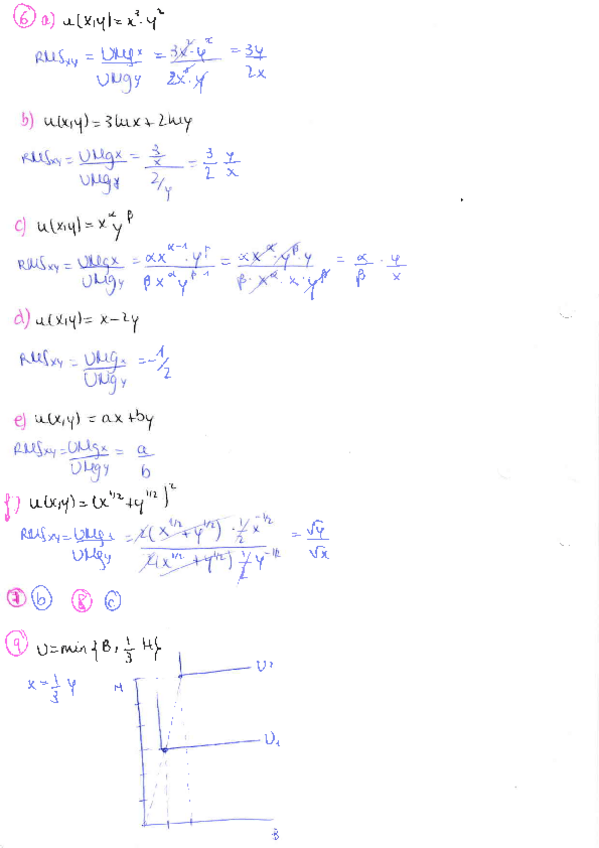 6 a) u(x,y)=x³·y²
RMSxy = UMgx/UMgy = 3x²·y²/2x³·y = 3y/2x
b) u(x,y)=3lnx+2lny
RMSxy = UMgx/UMgy = (3/x)/(2/y) = 3/2 y/x
c) u(x,y)=x^α y^β
RMSxy = UMgx/UMgy = αx^(α-1)·y^β/βx^α y^(β-1) = αx^α·y^β·y/β·x^α·x·y^β = α/β · y/x
d) u(x,y)= x-2y
RMSxy = UMgx/UMgy = -1/2
e) u(x,y) = ax+by
RMSxy = UMgx/UMgy = a/b
f) u(x,y)=(x^1/2+y^1/2)²
RMSxy = UMgx/UMgy = 2(x^1/2+y^1/2)·1/2 x^-1/2 / 2(x^1/2+y^1/2) 1/2 y^-1/2 = √y/√x
7 b 8 c
9 U=min{B, 1/3 H}
x=1/3 y
H
U₂
U₁
B